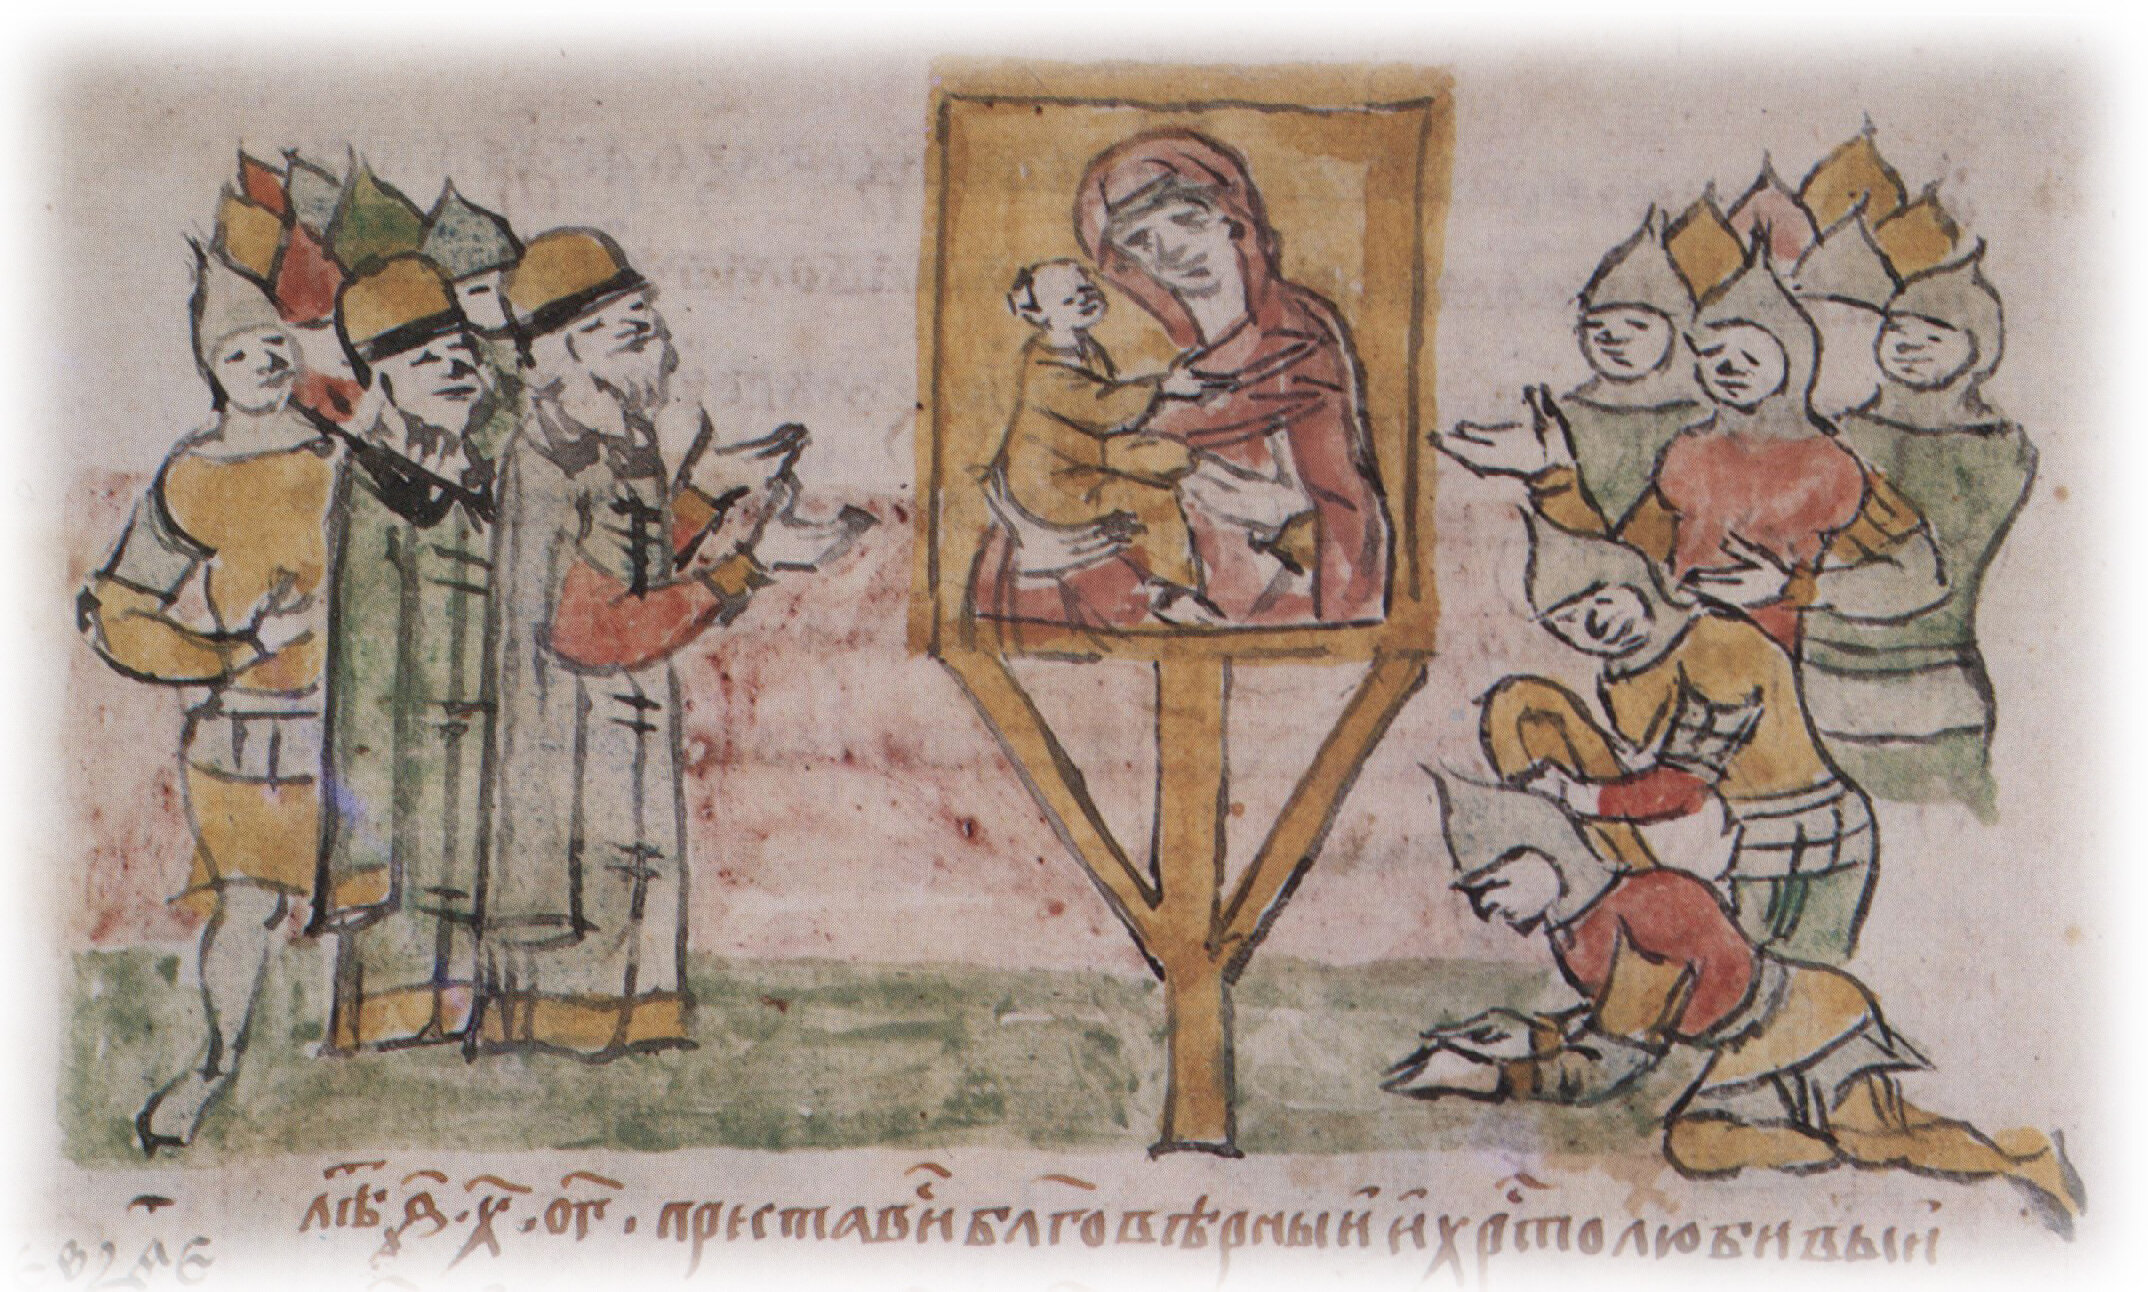 лⷮѣ ҂ѕ҃ · х҃ · ѻг҃ · преставиⷭ҇ блг҃овѣрныи и хрⷭ҇толюбивыи